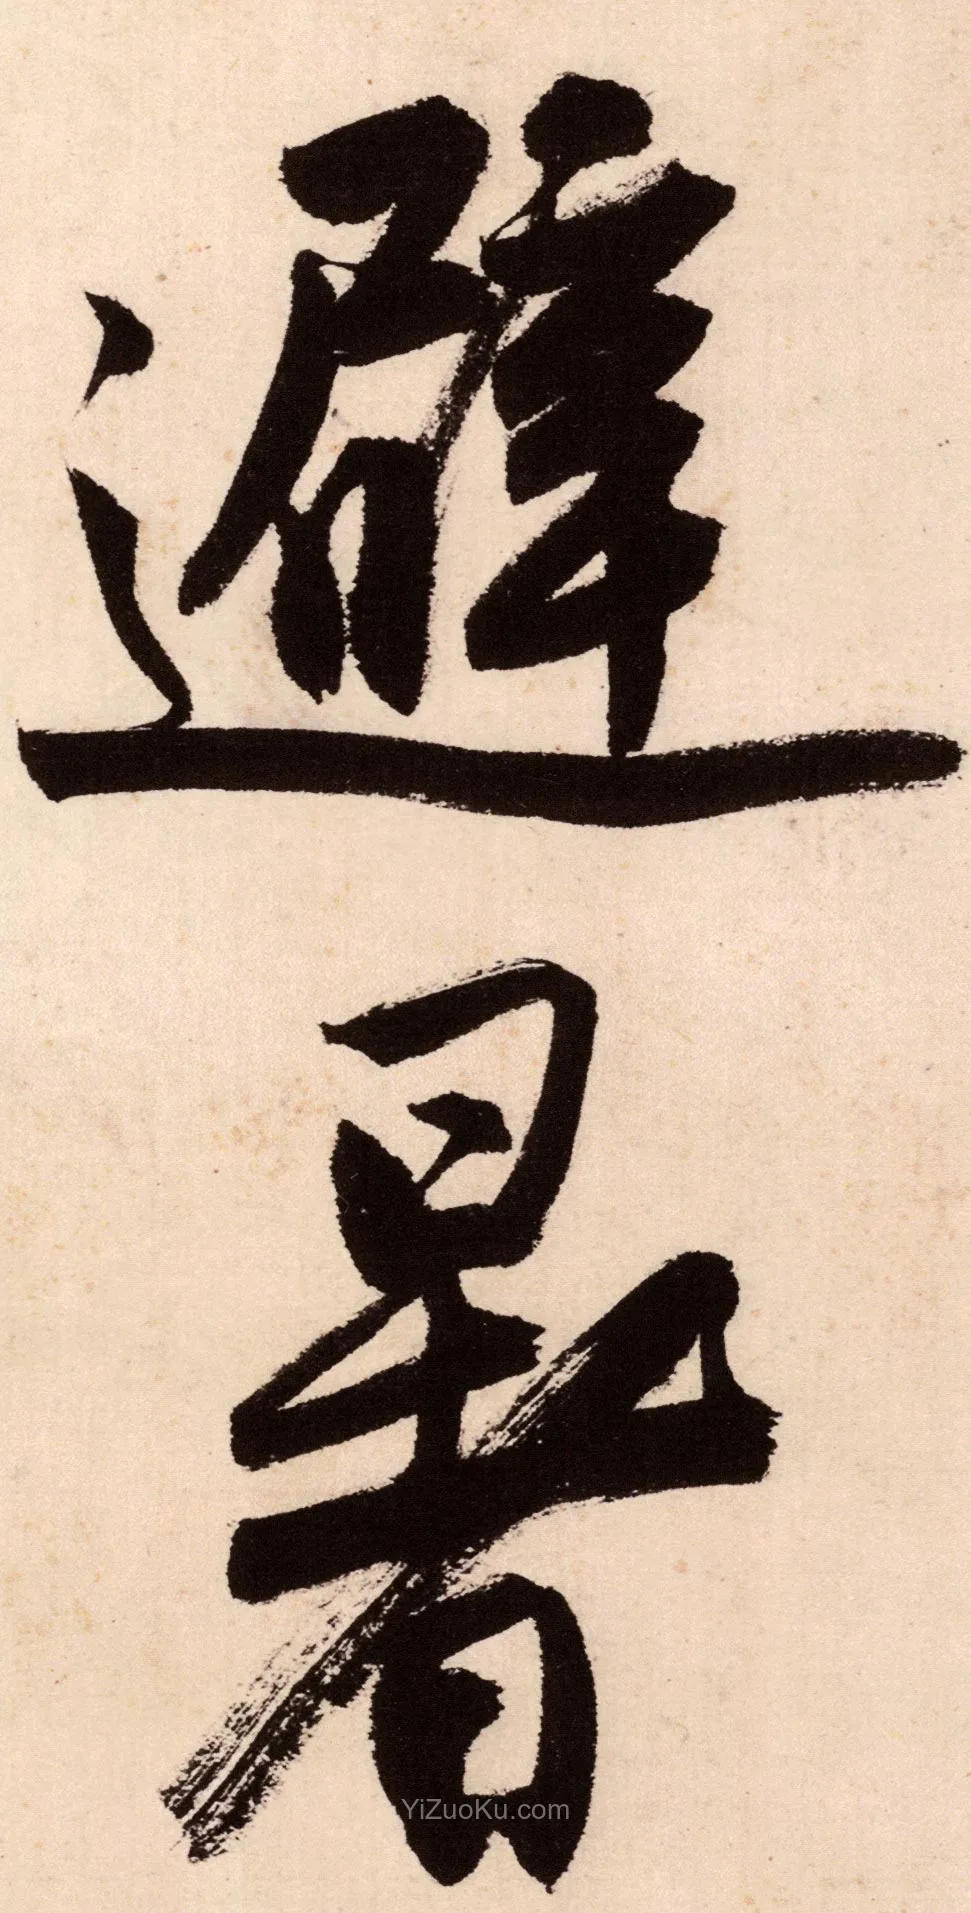 避暑
YiZuoKu.com